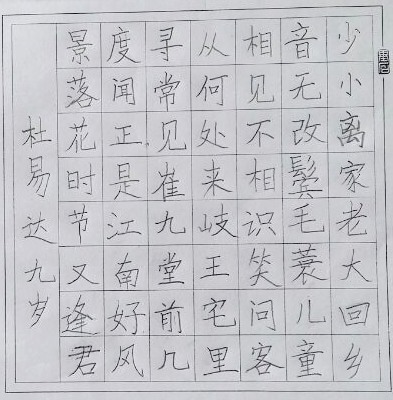 少小离家老大回乡
音无改鬓毛蓑儿童
相见不相识笑问客
从何处来岐王宅里
寻常见崔九堂前几
度闻正是江南好风
景落花时节又逢君
杜易达九岁